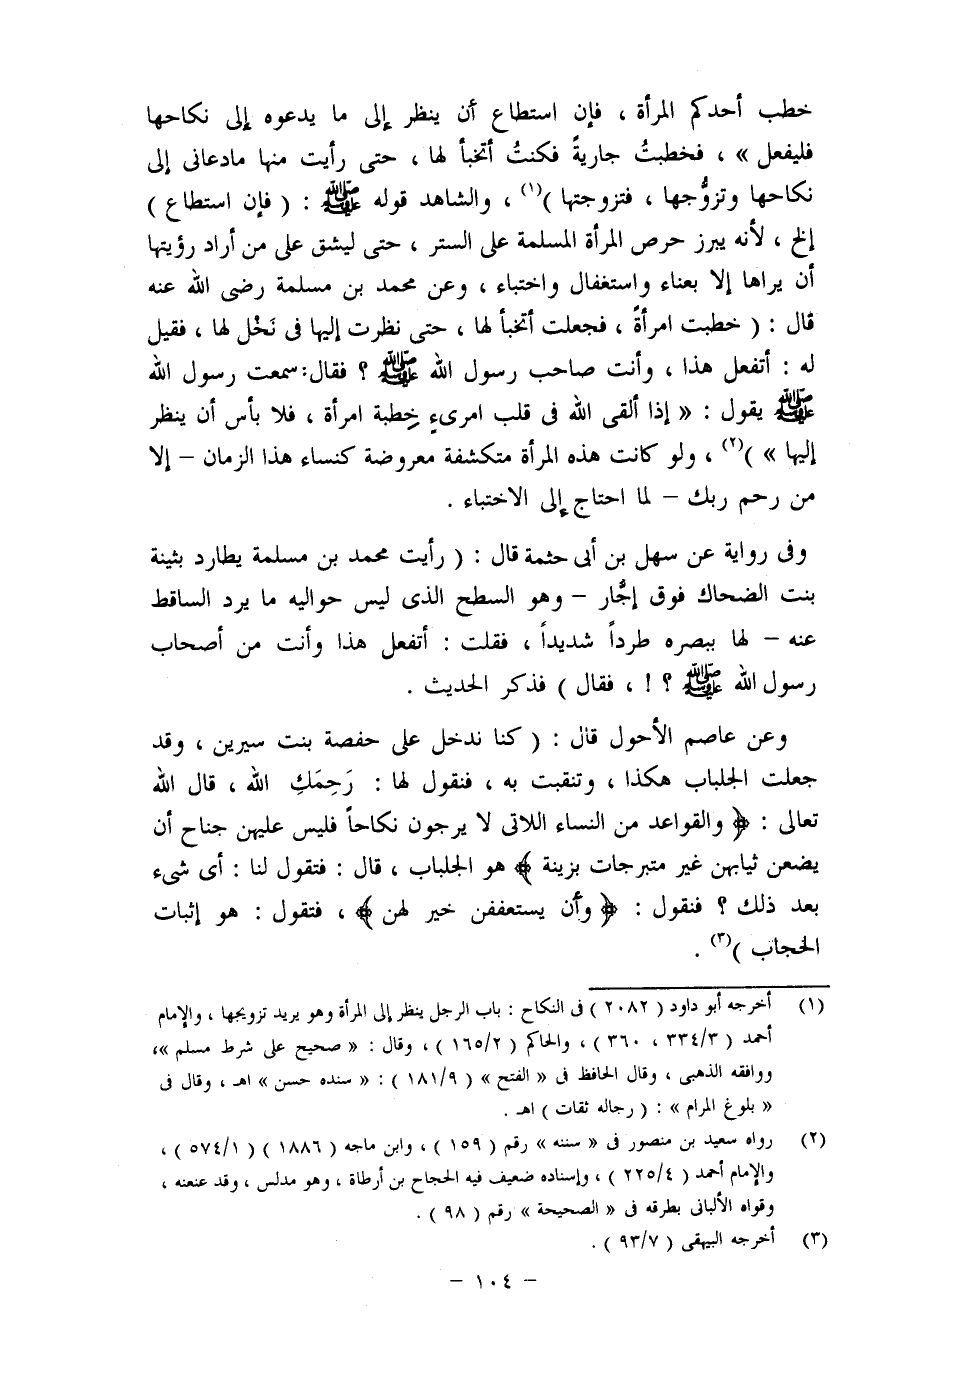 خطب أحدكم المرأة ، فإن استطاع أن ينظر إلى ما يدعوه إلى نكاحها
فليفعل » ، فخطبتُ جاريةً فكنتُ أتخبأ لها ، حتى رأيت منها مادعانى إلى
نكاحها وتزوُّجها ، فتزوجتها )(١) ، والشاهد قوله ﷺ : ( فإن استطاع )
إلخ ، لأنه يبرز حرص المرأة المسلمة على الستر ، حتى ليشق على من أراد رؤيتها
أن يراها إلا بعناء واستغفال واختباء ، وعن محمد بن مسلمة رضى الله عنه
قال : ( خطبت امرأةً ، فجعلت أتخبأ لها ، حتى نظرت إليها فى نَخْل لها ، فقيل
له : أتفعل هذا ، وأنت صاحب رسول الله ﷺ ؟ فقال: سمعت رسول الله
ﷺ يقول : « إذا ألقى الله فى قلب امرىءٍ خِطبة امرأة ، فلا بأس أن ينظر
إليها » )(٢) ، ولو كانت هذه المرأة متكشفة معروضة كنساء هذا الزمان – إلا
من رحم ربك – لما احتاج إلى الاختباء .
وفى رواية عن سهل بن أبى حثمة قال : ( رأيت محمد بن مسلمة يطارد بثينة
بنت الضحاك فوق إجَّار – وهو السطح الذى ليس حواليه ما يرد الساقط
عنه – لها ببصره طرداً شديداً ، فقلت : أتفعل هذا وأنت من أصحاب
رسول الله ﷺ ؟ ! ، فقال ) فذكر الحديث .
وعن عاصم الأحول قال : ( كنا ندخل على حفصة بنت سيرين ، وقد
جعلت الجلباب هكذا ، وتنقبت به ، فنقول لها : رَحِمَكِ الله ، قال الله
تعالى : ﴿ والقواعد من النساء اللاتى لا يرجون نكاحاً فليس عليهن جناح أن
يضعن ثيابهن غير متبرجات بزينة ﴾ هو الجلباب ، قال : فتقول لنا : أى شىء
بعد ذلك ؟ فنقول : ﴿ وأن يستعففن خير لهن ﴾ ، فتقول : هو إثبات
الحجاب )(٣) .
(١) أخرجه أبو داود ( ٢٠٨٢ ) فى النكاح : باب الرجل ينظر إلى المرأة وهو يريد تزويجها ، والإمام
أحمد ( ٣٣٤/٣ ، ٣٦٠ ) ، والحاكم ( ١٦٥/٢ ) ، وقال : « صحيح على شرط مسلم » ،
ووافقه الذهبى ، وقال الحافظ فى « الفتح » ( ١٨١/٩ ) : « سنده حسن » اهـ ، وقال فى
« بلوغ المرام » : ( رجاله ثقات ) اهـ .
(٢) رواه سعيد بن منصور فى « سننه » رقم ( ١٥٩ ) ، وابن ماجه ( ١٨٨٦ ) ( ٥٧٤/١ ) ،
والإمام أحمد ( ٢٢٥/٤ ) ، وإسناده ضعيف فيه الحجاج بن أرطاة ، وهو مدلس ، وقد عنعنه ،
وقواه الألبانى بطرقه فى « الصحيحة » رقم ( ٩٨ ) .
(٣) أخرجه البيهقى ( ٩٣/٧ ) .
– ١٠٤ –